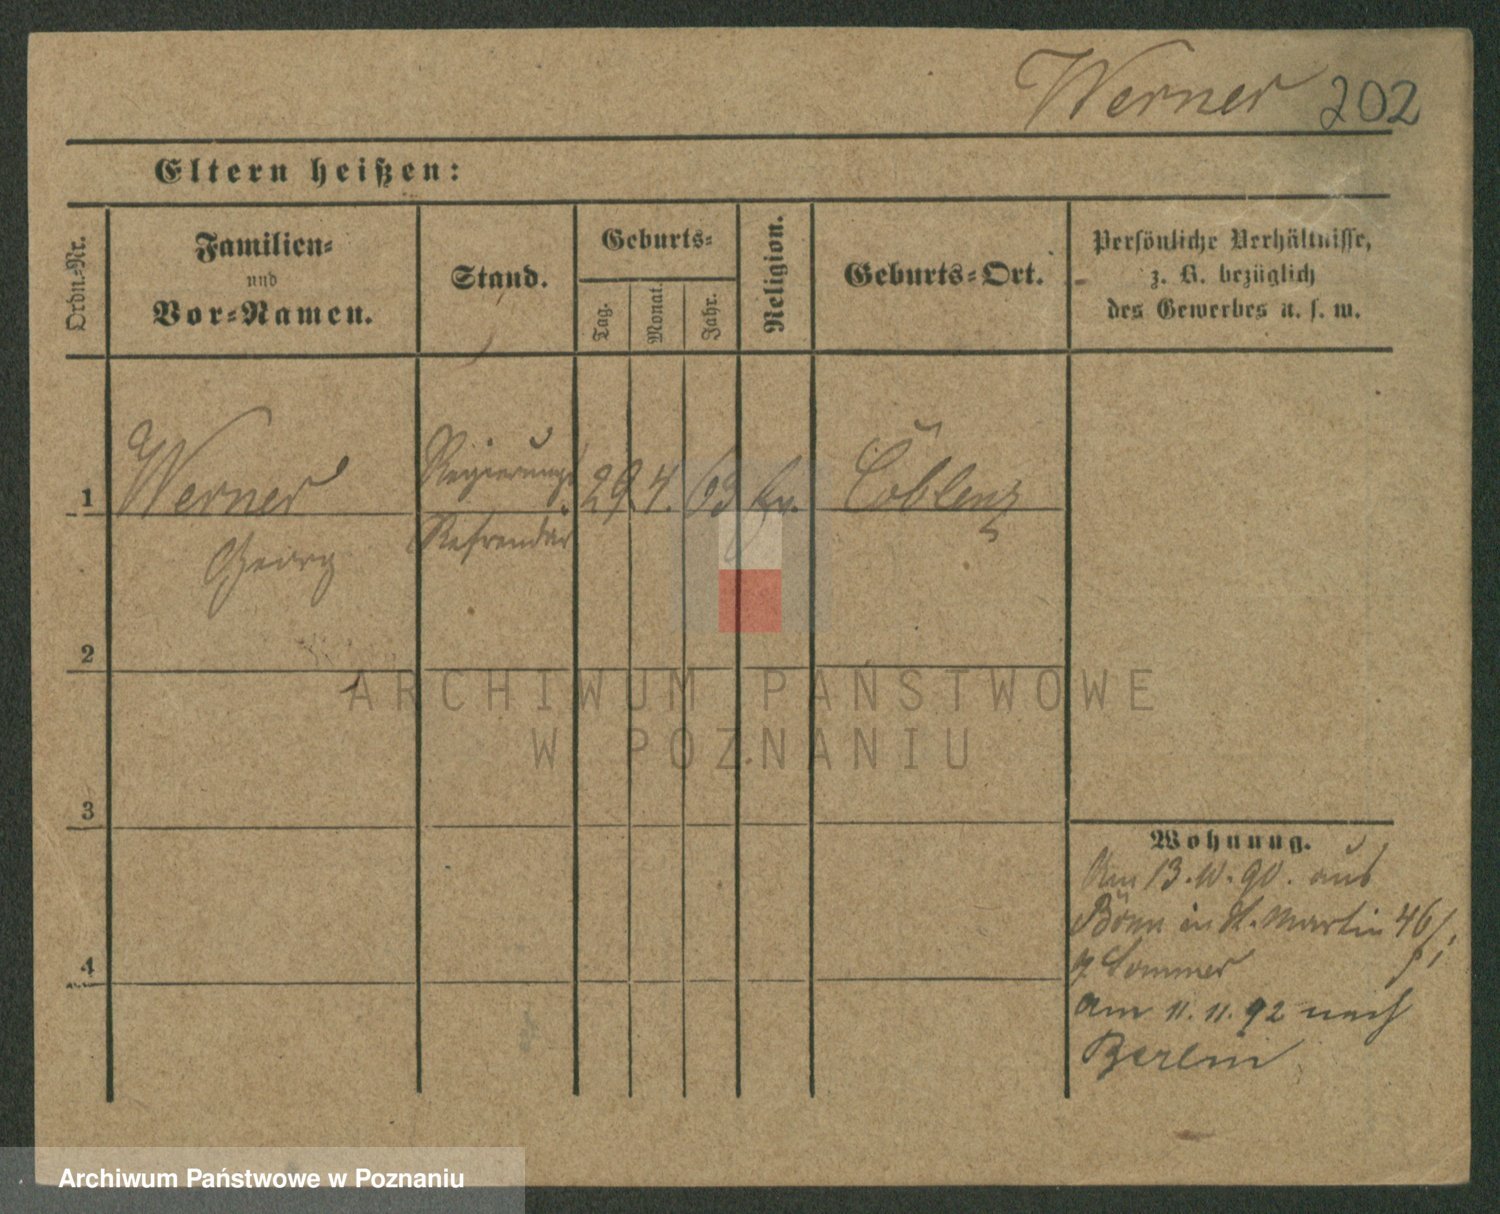 Werner 202
Eltern heißen:
Ordn.-Nr.
Familien-
und
Vor-Namen.
Stand.
Geburts-
Tag.
Monat.
Jahr.
Religion.
Geburts-Ort.
Persönliche Verhältnisse,
z. B. bezüglich
des Gewerbes u. s. w.
1 Werner Regierungs 29 4. 63 Ev. Coblenz
Georg Referendar
2
ARCHIWUM PAŃSTWOWE
W POZNANIU
3
Wohnung.
Am 13. 10. 90. aus
Bonn in St. Martin 46/
Sommer
4
am 11. 11. 92 nach
Berlin
Archiwum Państwowe w Poznaniu